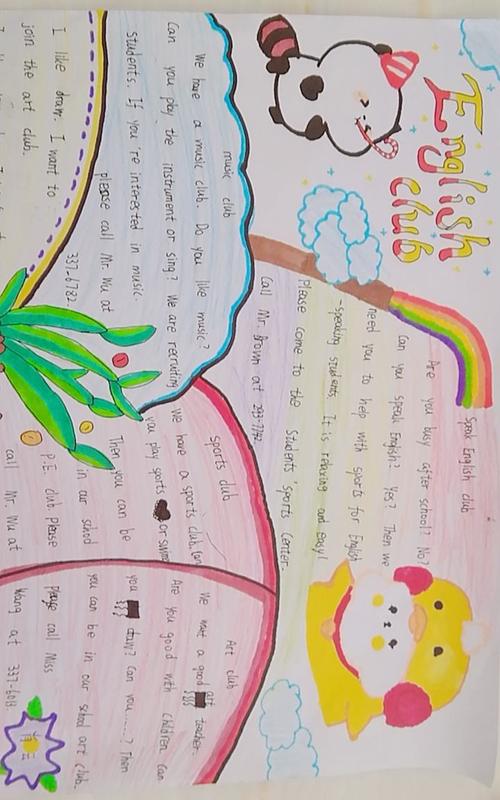 English
club
Speak English club
Are you busy after school? No?
Can you speak English? Yes? Then we
need you to help with sports for English
-speaking students. It is relaxing and easy!
Please come to the Students' Sports Center.
Call Mr. Brown at 293-7742
music club
We have a music club. Do you like music?
Can you play the instrument or sing? We are recruiting
students. If you're interested in music.
please call Mr. Wu at
337-6782.
I like draw. I want to
join the art club.
sports club
We have a sports club. Can
you play sports or swim?
Then you can be
in our school
P.E. club. Please
call Mr. Wu at
Art club
We want a good art teacher.
Are you good with children Can
you draw? Can you......? Then
you can be in our school art club.
Please call Miss
Wang at 337-608